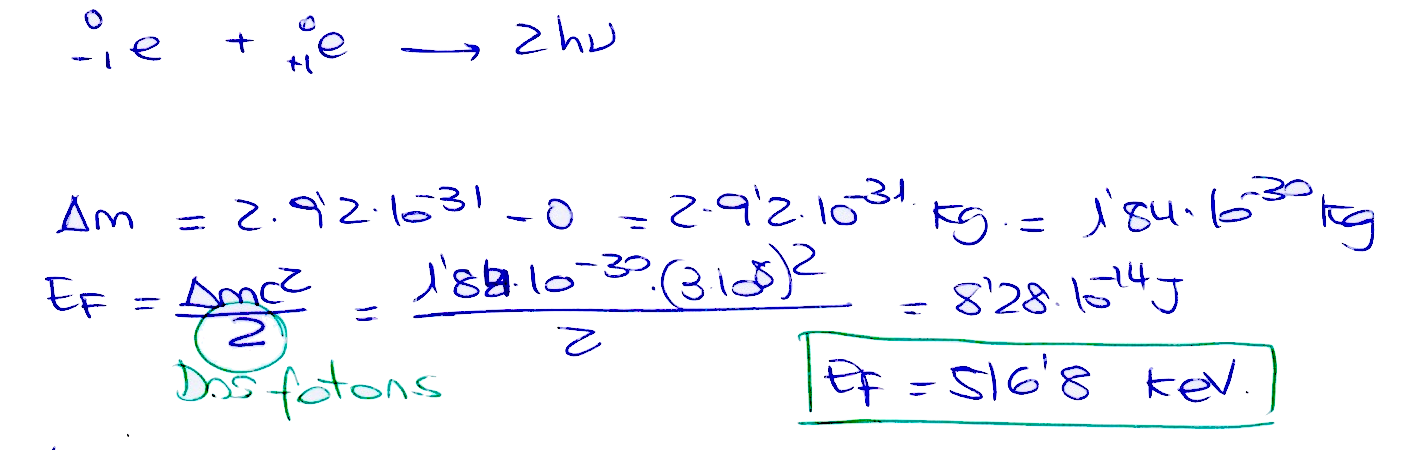 ⁰₋₁e + ⁰₊₁e → 2hν
Δm = 2·9'2·10⁻³¹ - 0 = 2·9'2·10⁻³¹ kg. = 1'84·10⁻³⁰ kg
E_F = Δmc²/2 = 1'84·10⁻³⁰·(3·10⁸)²/2 = 8'28·10⁻¹⁴ J
Dos fotons
E_F = 516'8 keV.